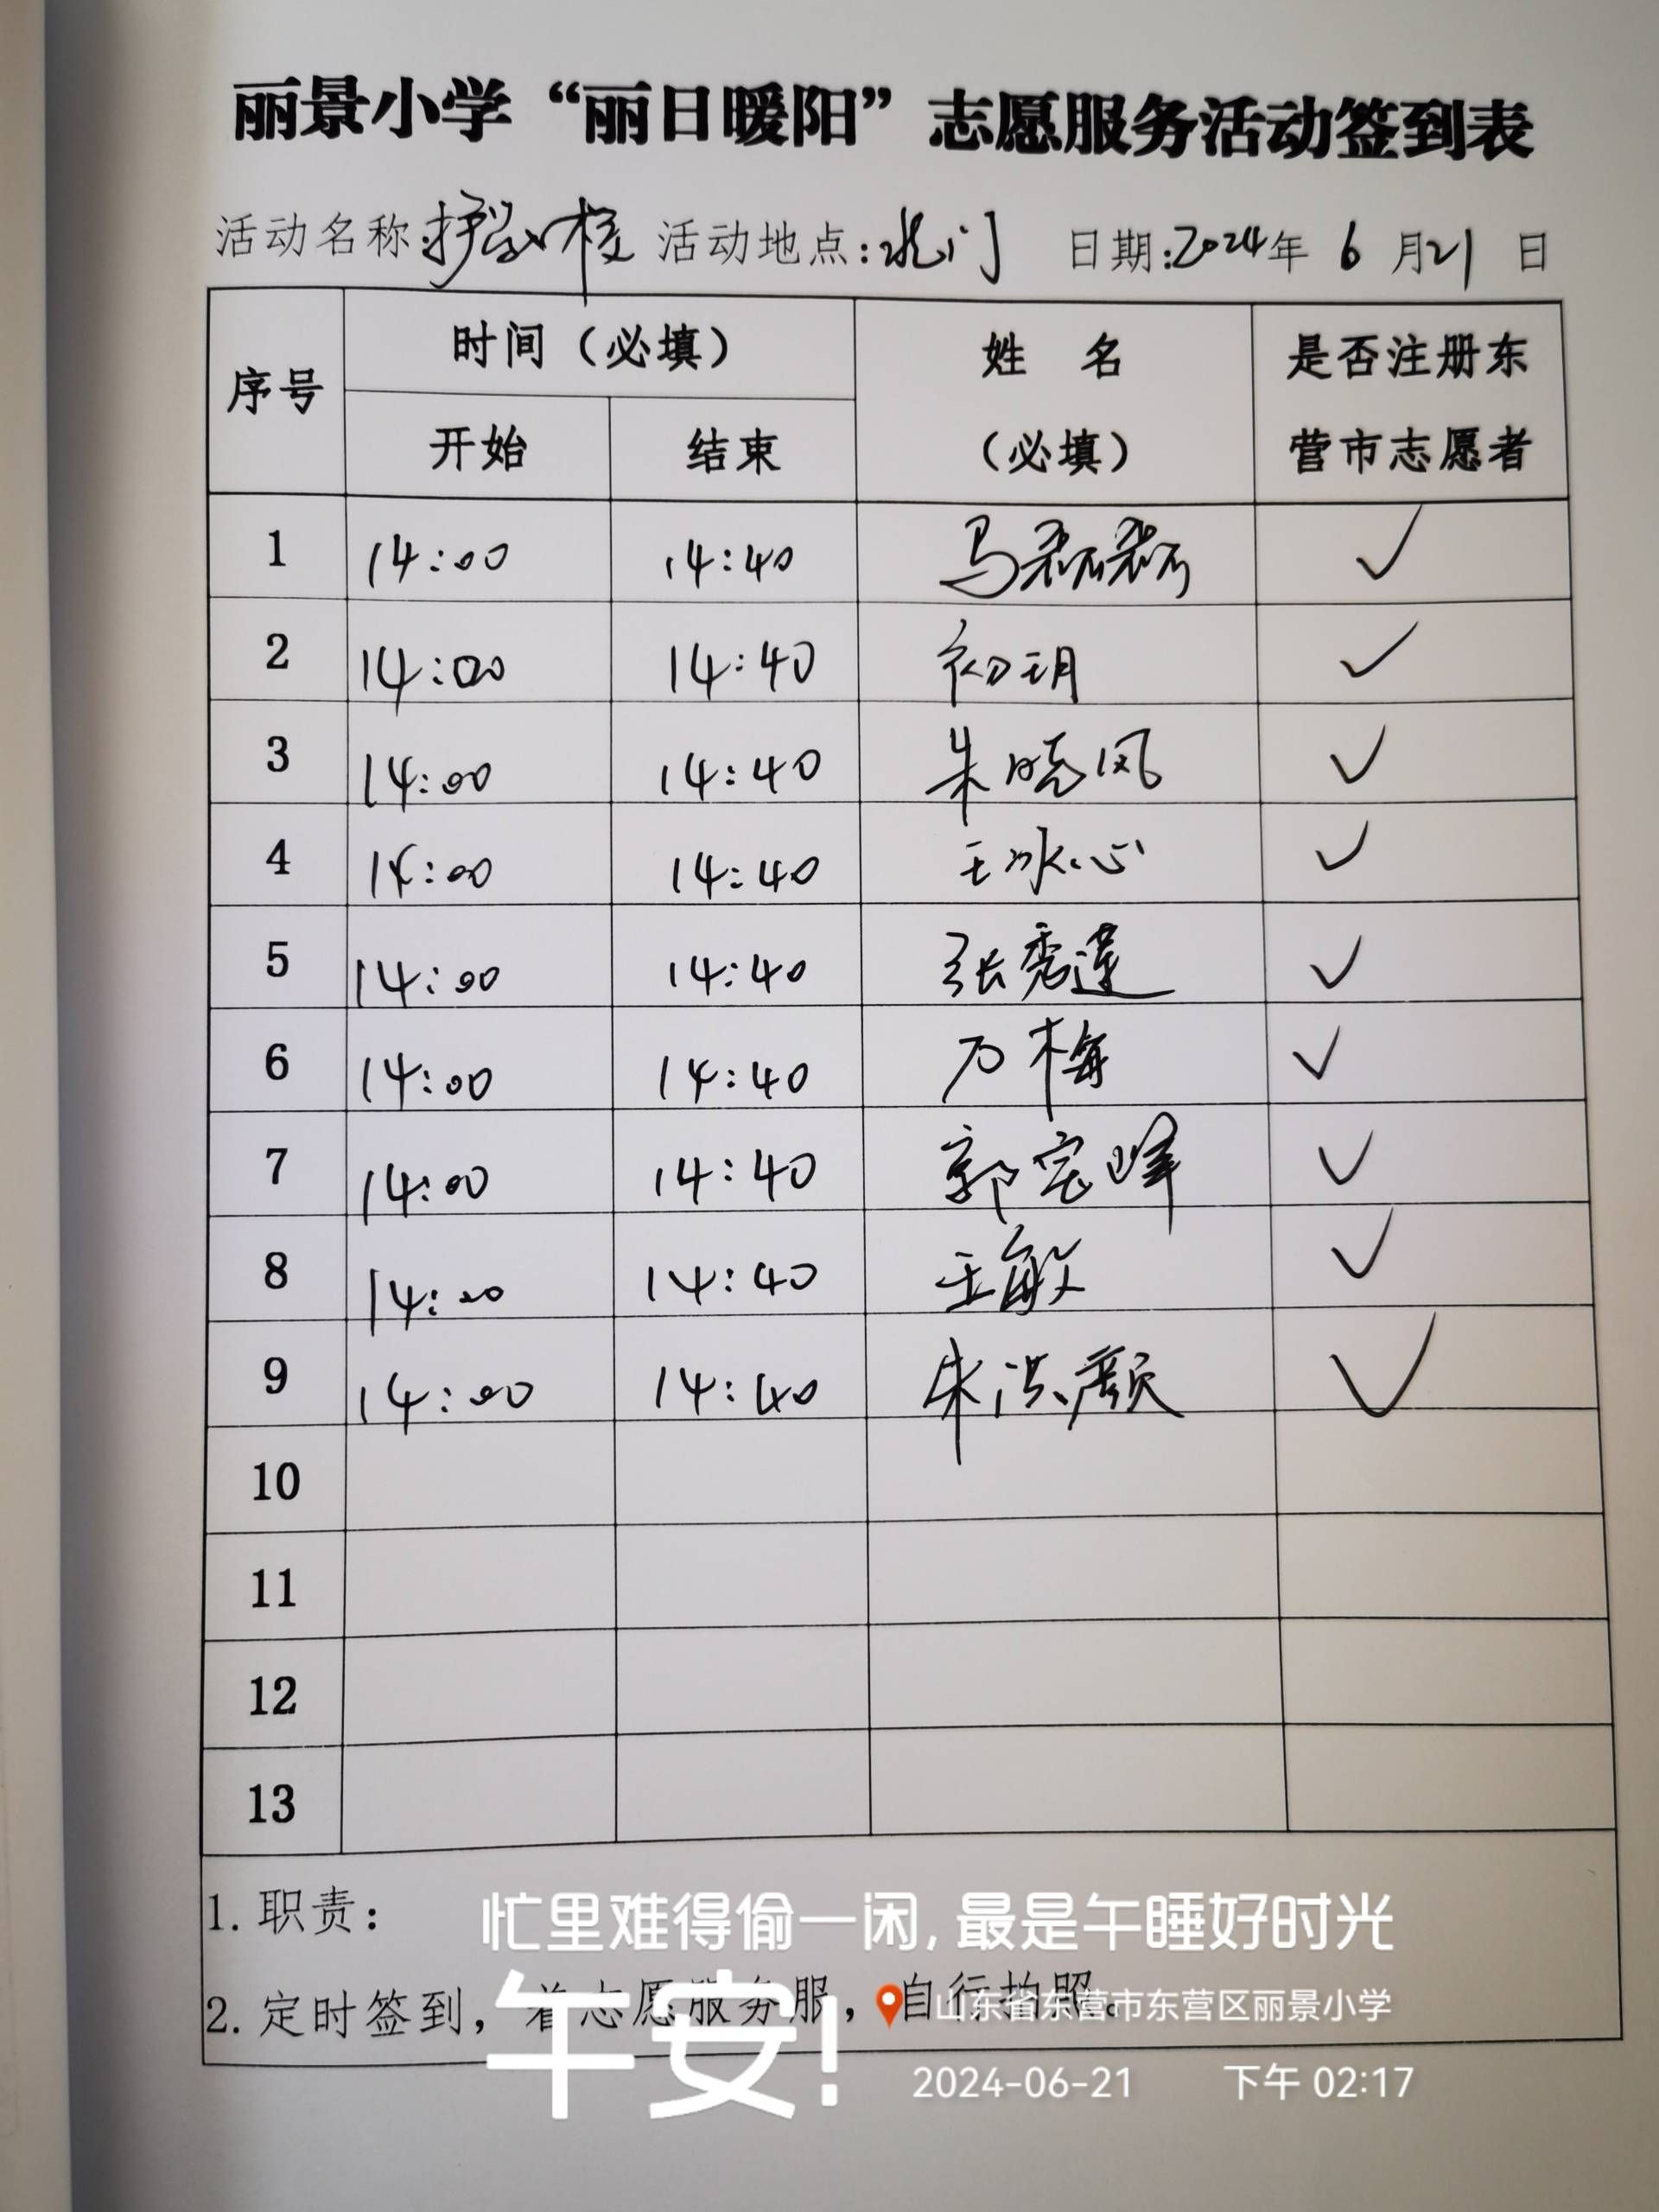 丽景小学“丽日暖阳”志愿服务活动签到表
活动名称:护学小梭 活动地点:北门 日期:2024年 6 月21 日
序号 时间（必填） 姓 名（必填） 是否注册东营市志愿者
开始 结束
1 14:00 14:40 马磊磊 ✓
2 14:00 14:40 初玥 ✓
3 14:00 14:40 朱晓风 ✓
4 14:00 14:40 王冰心 ✓
5 14:00 14:40 张秀莲 ✓
6 14:00 14:40 万梅 ✓
7 14:00 14:40 郭宝峰 ✓
8 14:00 14:40 王敏 ✓
9 14:00 14:40 朱洪颜 ✓
10
11
12
13
1. 职责：
2. 定时签到，着志愿服务服，自行拍照。
忙里难得偷一闲,最是午睡好时光
午安!
山东省东营市东营区丽景小学
2024-06-21 下午 02:17